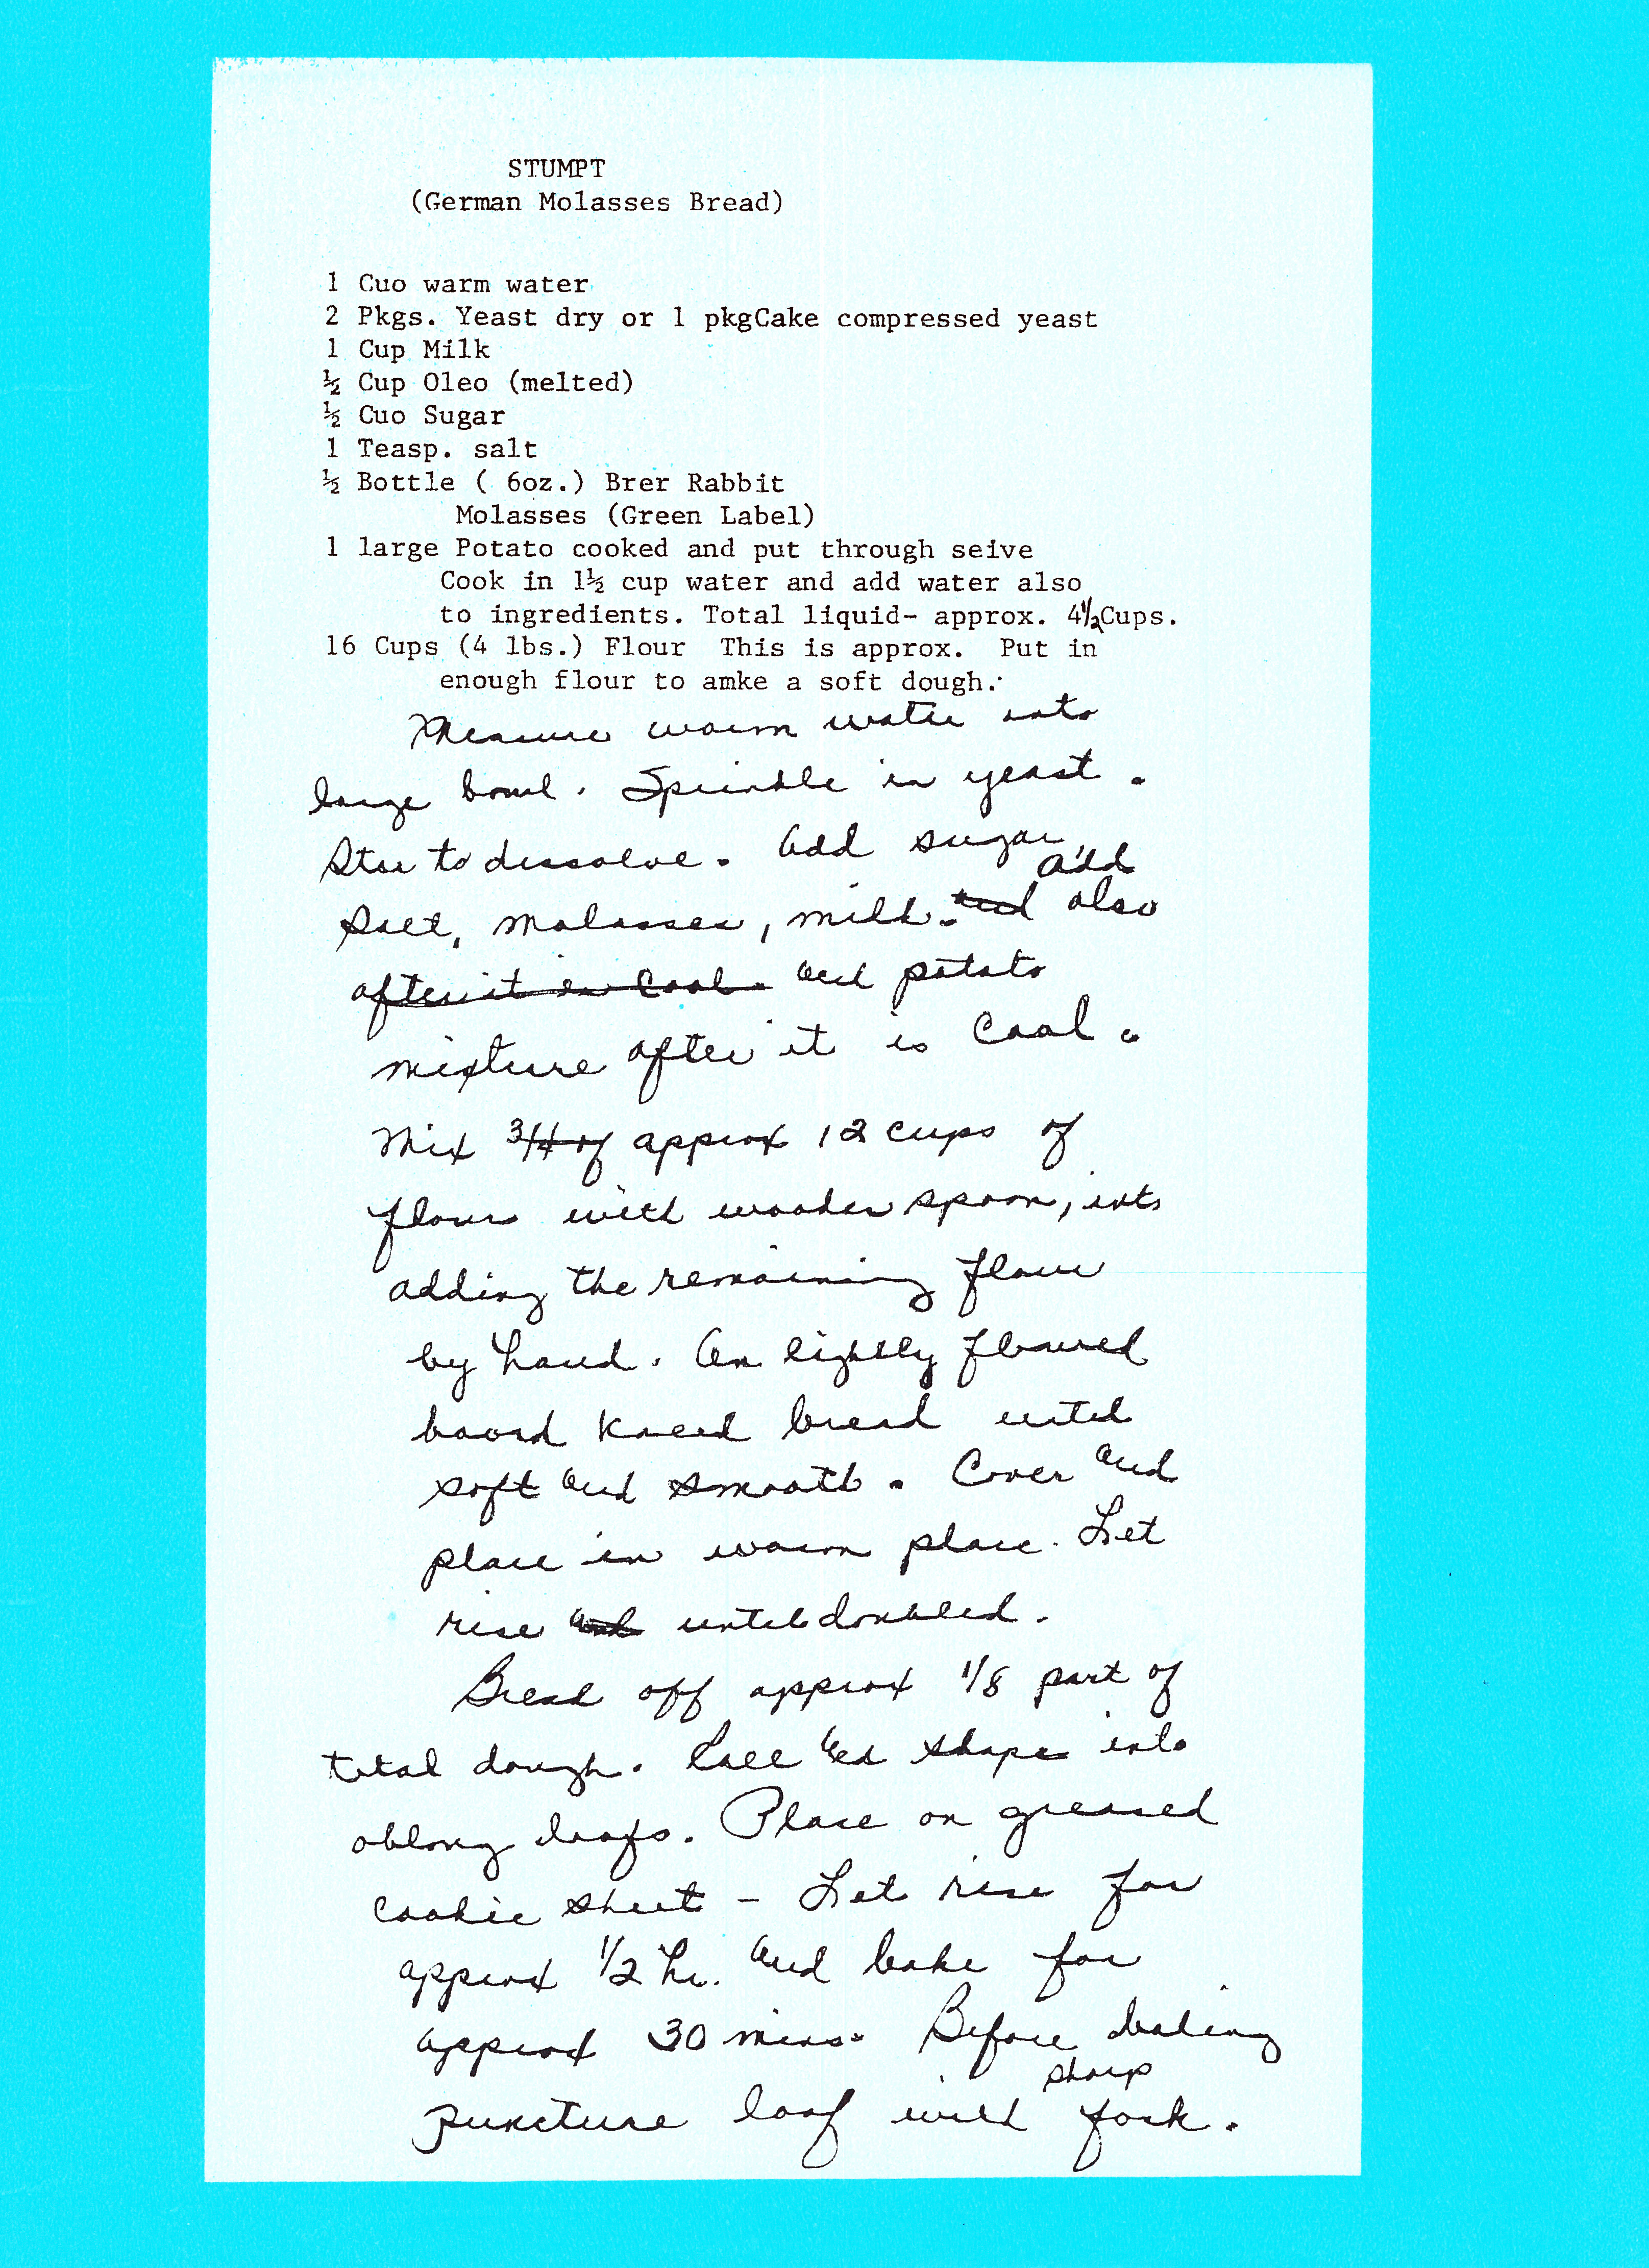 STUMPT
(German Molasses Bread)
1 Cuo warm water
2 Pkgs. Yeast dry or 1 pkgCake compressed yeast
1 Cup Milk
½ Cup Oleo (melted)
½ Cuo Sugar
1 Teasp. salt
½ Bottle ( 6oz.) Brer Rabbit
Molasses (Green Label)
1 large Potato cooked and put through seive
Cook in 1½ cup water and add water also
to ingredients. Total liquid- approx. 4½Cups.
16 Cups (4 lbs.) Flour This is approx. Put in
enough flour to amke a soft dough.
Measure warm water into
large bowl. Sprinkle in yeast.
Stir to dissolve. Add sugar,
add
salt, molasses, milk. and also
after it is cool. and potato
mixture after it is cool.
Mix 3/4 of approx 12 cups of
flour with wooden spoon, into
adding the remaining flour
by hand. On lightly floured
board knead bread until
soft and smooth. Cover and
place in warm place. Let
rise and until doubled.
Break off approx 1/8 part of
total dough. Roll and shape into
oblong loafs. Place on greased
cookie sheet - Let rise for
approx 1/2 hr. and bake for
approx 30 mins. Before baking
sharp
puncture loaf with fork.